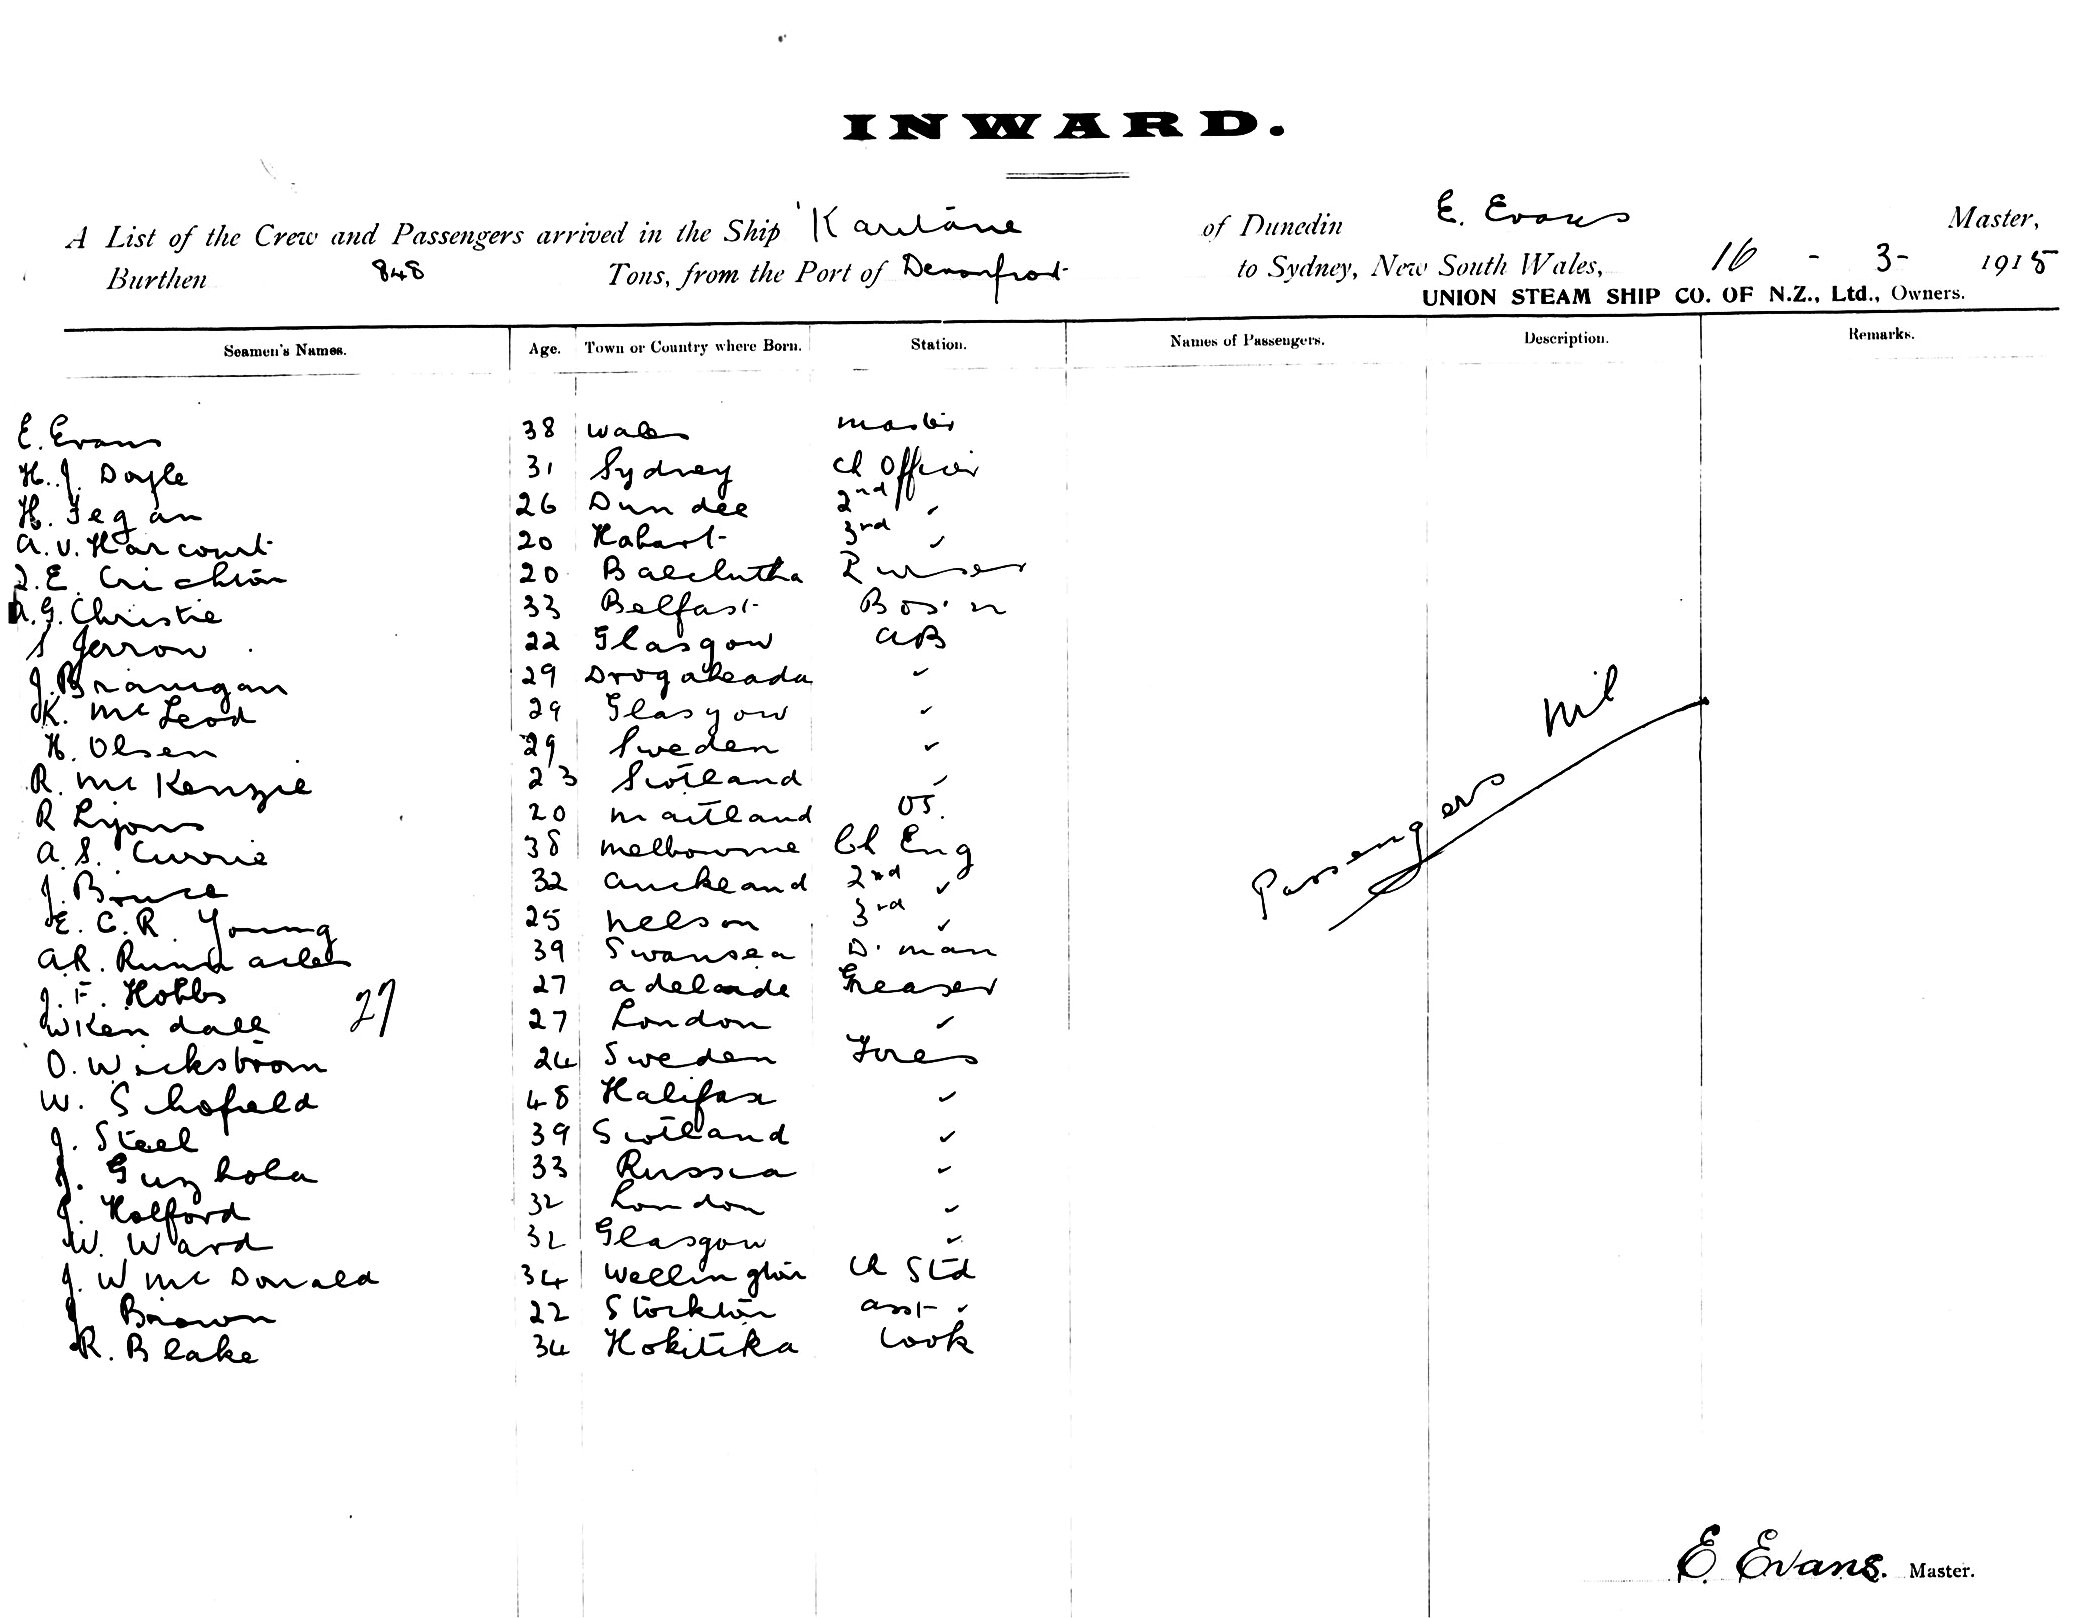 INWARD.
A List of the Crew and Passengers arrived in the Ship 'Karitane of Dunedin E. Evans Master,
Burthen 848 Tons, from the Port of Devonport to Sydney, New South Wales, 16 - 3 - 1915
UNION STEAM SHIP CO. OF N.Z., Ltd., Owners.
Seamen's Names. Age. Town or Country where Born. Station. Names of Passengers. Description. Remarks.
E. Evans 38 Wales Master
H. J. Doyle 31 Sydney Ch Officer
H. Fegan 26 Dundee 2nd "
A. V. Harcourt 20 Hobart 3rd "
E. Crichton 20 Balclutha Purser
A. G. Christie 33 Belfast Bos'n
S Jerrow 22 Glasgow AB
J. Branigan 29 Drogaheada "
K. McLeod 29 Glasgow "
H. Olsen 29 Sweden "
R. McKenzie 23 Scotland "
R Lyons 20 Maitland OS.
A. S. Currie 38 Melbourne Ch Eng
J. Bruce 32 Auckland 2nd "
E. C. R. Young 25 Nelson 3rd "
A. R. 39 Swansea D. man
J. F. Hobbs 27 Adelaide Greaser
W Kendall 27 London "
27
O. Wickstrom 24 Sweden Fires
W. Schofield 48 Halifax "
J. Steel 39 Scotland "
J. 33 Russia "
J. Holford 32 London "
W. Ward 32 Glasgow "
J. W McDonald 34 Wellington Ch Std
J Brown 22 Stockton asst "
R. Blake 34 Hokitika Cook
Passengers Nil
E. Evans. Master.